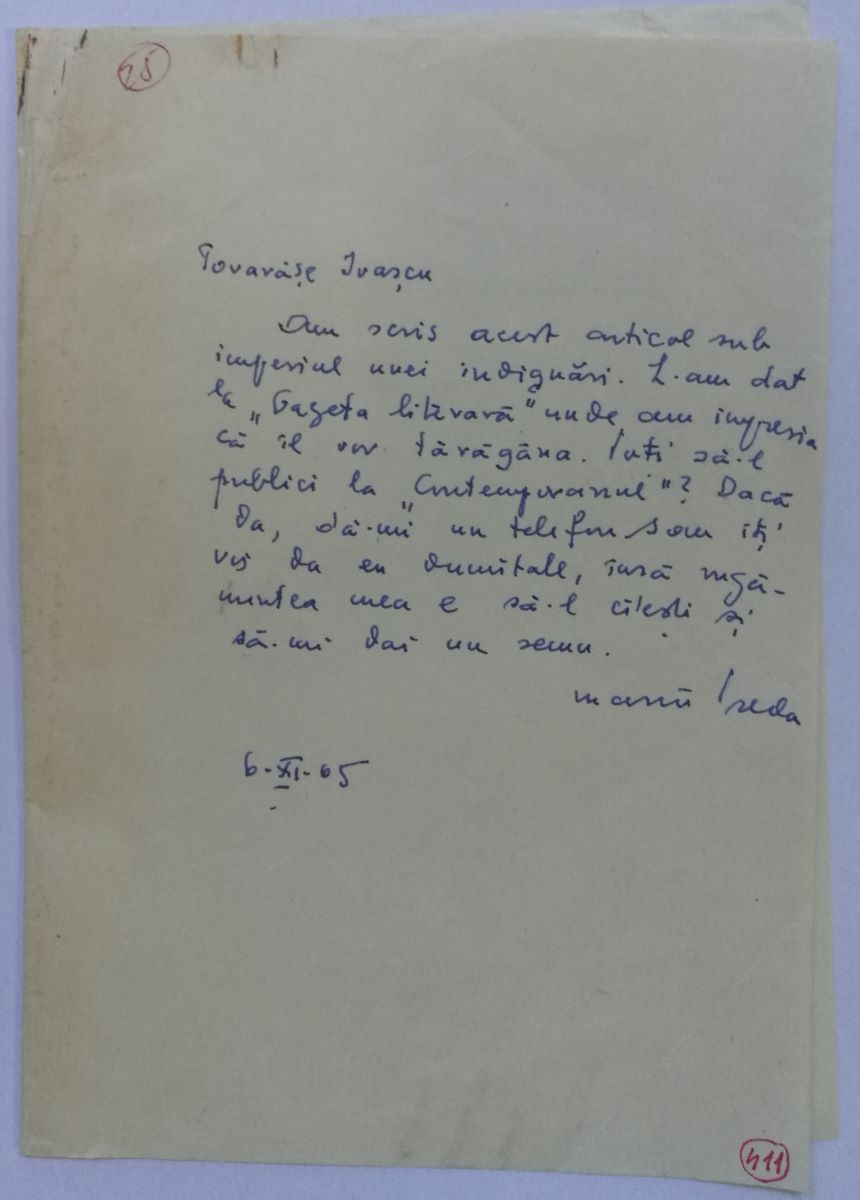 45
Tovarășe Ivașcu
Am scris acest articol sub
imperiul unei indignări. L-am dat
la „Gazeta literară" unde am impresia
că îl vor tărăgăna. Puteți să-l
publici la „Contemporanul"? Dacă
da, dă-mi un telefon sau iți
voi da eu dumitale, însă rugă-
mintea mea e să-l citești și
să-mi dai un semn.
Marin Preda
6-XI-65
411